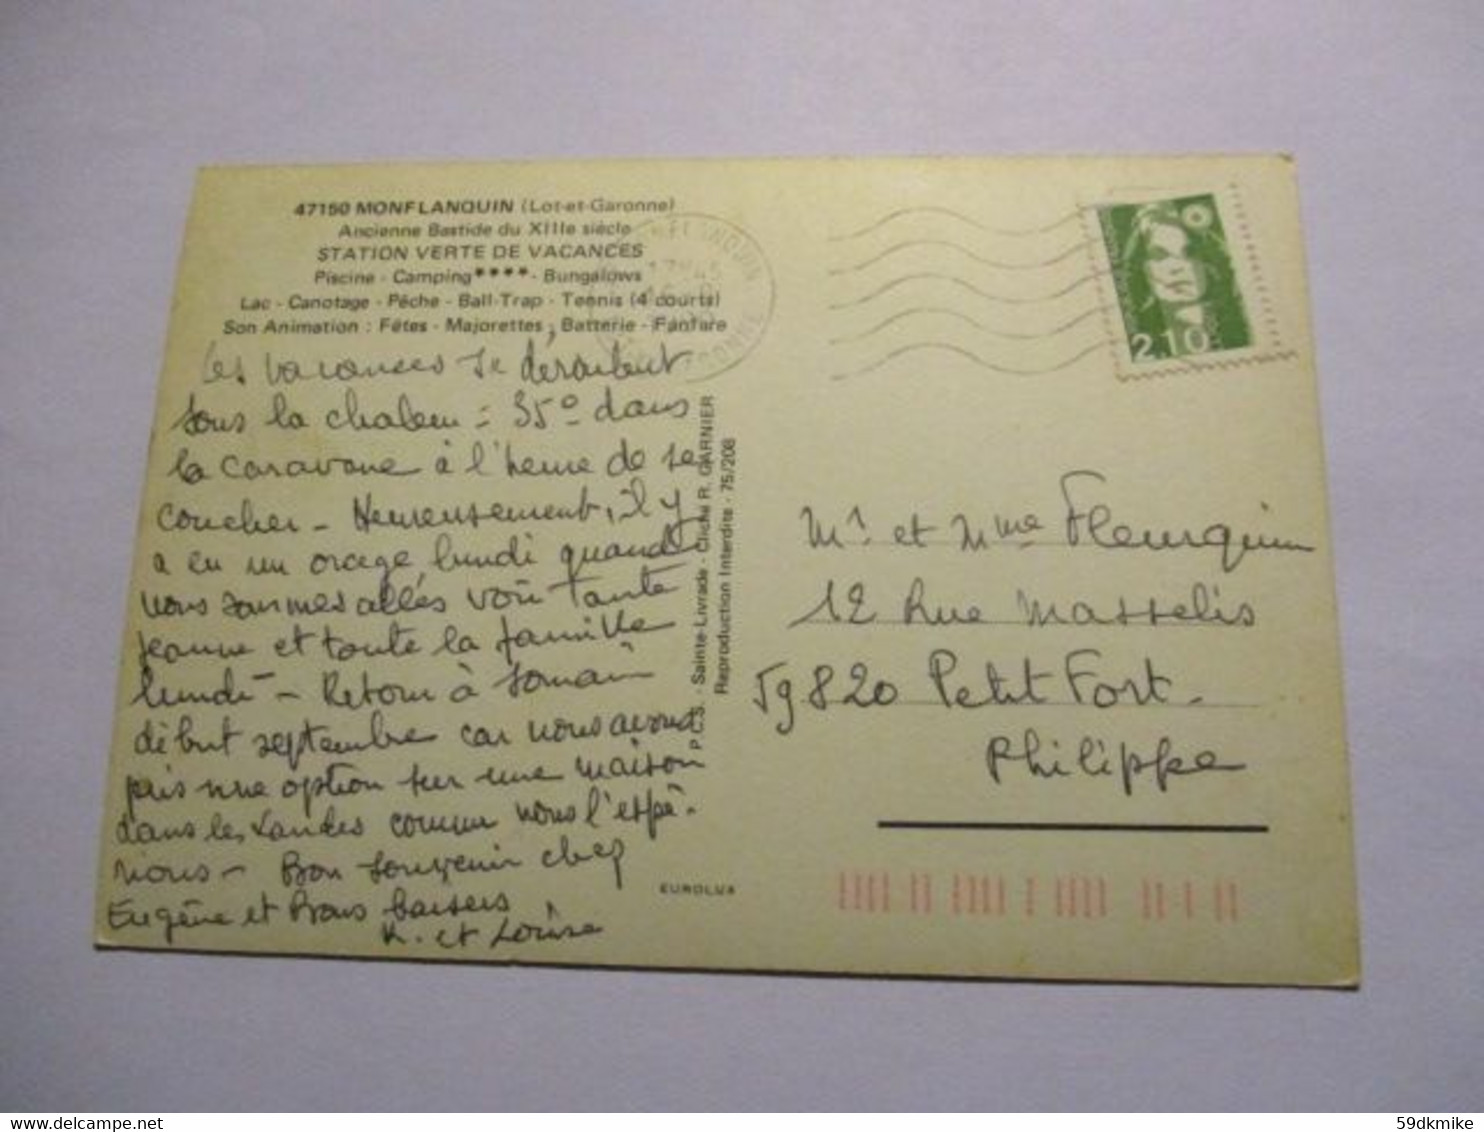 47150 MONFLANQUIN (Lot-et-Garonne)
Ancienne Bastide du XIIIe siècle
STATION VERTE DE VACANCES
Piscine - Camping**** - Bungalows
Lac - Canotage - Pêche - Ball-Trap - Tennis (4 courts)
Son Animation : Fêtes - Majorettes, Batterie - Fanfare
Les vacances se déroulent
sous la chaleur = 35° dans
la caravane à l'heure de se
coucher - Heureusement, il y
a eu un orage lundi quand
nous sommes allés voir tante
Jeanne et toute la famille
lundi - Retour à Somain
début septembre car nous avons
pris une option sur une maison
dans les Landes comme nous l'espé-
rions - Bon souvenir chez
Eugène et Bons baisers
R. et Louise
P.C.S. - Sainte-Livrade - Cliché R. GARNIER
Reproduction Interdite - 75/208
EUROLUX
2,10
Mr et Mme Fleurquin
12 Rue Masselis
59820 Petit Fort
Philippe
59dkmike